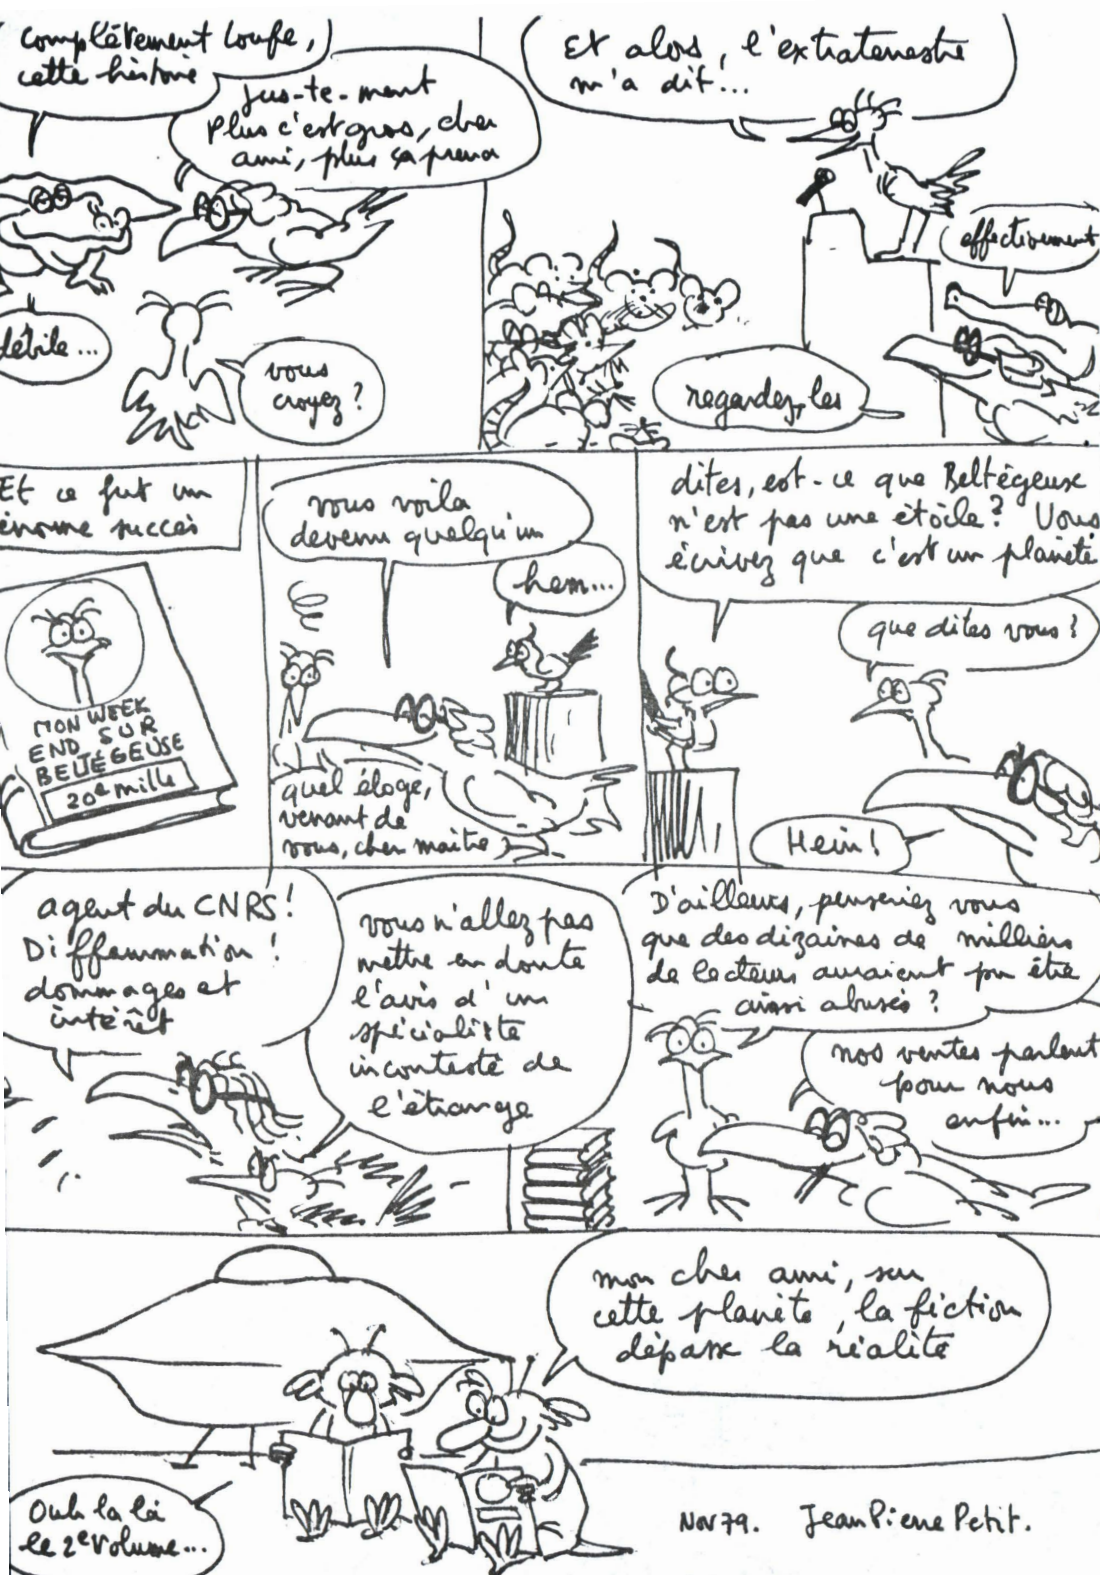 complètement loufe,
cette histoire
jus-te-ment
Plus c'est gros, cher
ami, plus ça prend
débile...
vous
croyez ?
Et alors, l'extraterrestre
m'a dit...
effectivement
regardez, les
Et ce fut un
énorme succès
MON WEEK
END SUR
BELTÉGEUSE
20e mille
vous voila
devenu quelqu'un
hem...
quel éloge,
venant de
vous, cher maitre
dites, est-ce que Beltégeuse
n'est pas une étoile? Vous
écrivez que c'est un planète
que dites vous ?
Hein !
agent du CNRS!
Diffammation !
dommages et
intérêt
vous n'allez pas
mettre en doute
l'avis d'un
spécialiste
incontesté de
l'étrange
D'ailleurs, penseriez vous
que des dizaines de milliers
de lecteurs auraient pu être
ainsi abusés ?
nos ventes parlent
pour nous
enfin...
mon cher ami, sur
cette planète, la fiction
dépasse la réalité
Ouh la là
le 2e volume...
Nov 79. Jean Pierre Petit.